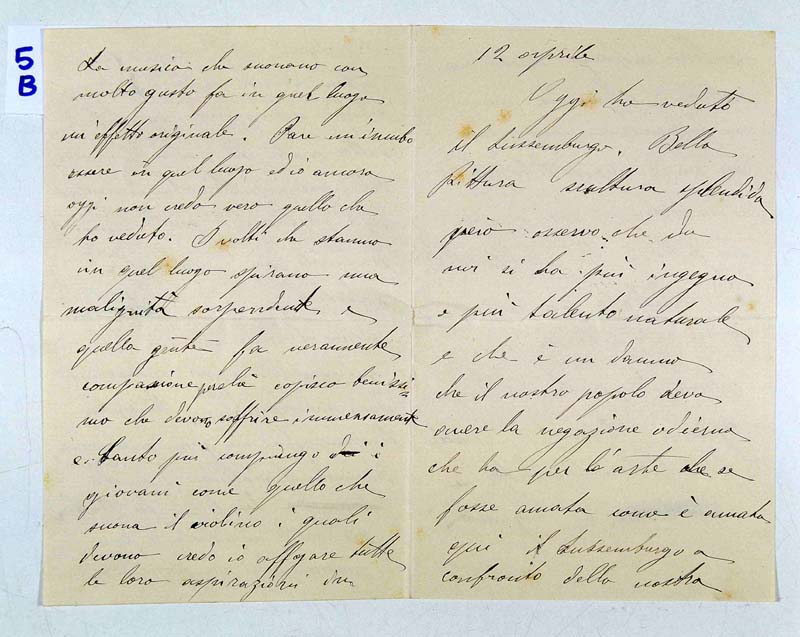 5
B
La musica che suonano con
molto gusto fa in quel luogo
un'effetto originale. Pare un incubo
essere in quel luogo ed io ancora
oggi non credo vero quello che
ho veduto. I volti che stanno
in quel luogo spirano una
malignità sorprendente e
quella gente fa veramente
compassione perchè capisco benissi-
mo che devon soffrire immensamente
e tanto più compiango i
giovani come quello che
suona il violino i quali
devono credo io affogare tutte
le loro aspirazioni in
12 aprile
Oggi ho veduto
il Lussemburgo. Bella
pittura scultura splendida
però osservo che da
noi si ha più ingegno
e più talento naturale
e che è un danno
che il nostro popolo deva
avere la negazione odierna
che ha per l'arte che se
fosse amata come è amata
qui il Lussemburgo a
confronto della nostra